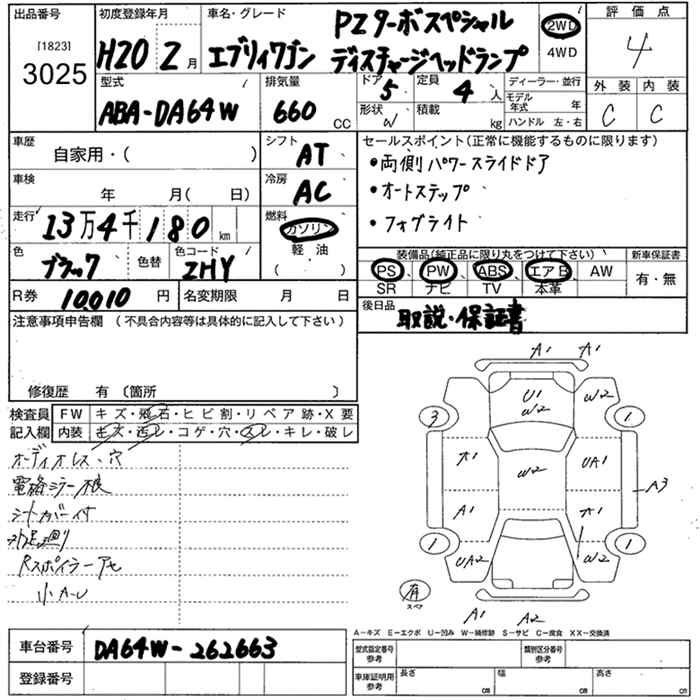 出品番号 [1823] 3025
初度登録年月 H20 2 月
車名・グレード エブリィワゴン PZターボスペシャル ディスチャージヘッドランプ
2WD
4WD
評価点 4
型式 ABA-DA64W
排気量 660 CC
ドア 5
定員 4 人
形状 W
積載 kg
ディーラー・並行
モデル年式 年
ハンドル 左・右
外装 内装
C C
車歴 自家用・( )
シフト AT
車検 年 月( 日)
冷房 AC
走行 13万4千180 km
燃料 ガソリン
軽油
( )
色 ブラック 色替
色コード ZHY
R券 10010 円
名変期限 月 日
セールスポイント(正常に機能するものに限ります)
・両側パワースライドドア
・オートステップ
・フォグライト
装備品(純正品に限り丸をつけて下さい)
新車保証書
PS、PW、ABS、エアB、AW
SR ナビ TV 本革
有・無
後日品 取説・保証書
注意事項申告欄 (不具合内容等は具体的に記入して下さい)
修復歴 有 〔箇所 〕
検査員記入欄
FW キズ・飛石・ヒビ割・リペア跡・X要
内装 キズ・汚レ・コゲ・穴・スレ・キレ・破レ
オーディオレス、穴
シートカバー付
Rスポイラーアセ
小A-U
A1 A1
U1
W2 W2
3 1
A1 W2 UA1
A3
A1 A1
1 1
UA2 W2
有
スペア
A1 A2
A-キズ E-エクボ U-凹み W-補修跡 S-サビ C-腐食 XX-交換済
車台番号 DA64W-262663
登録番号
型式指定番号 参考
類別区分番号 参考
車庫証明用 参考
長さ cm 幅 cm 高さ cm